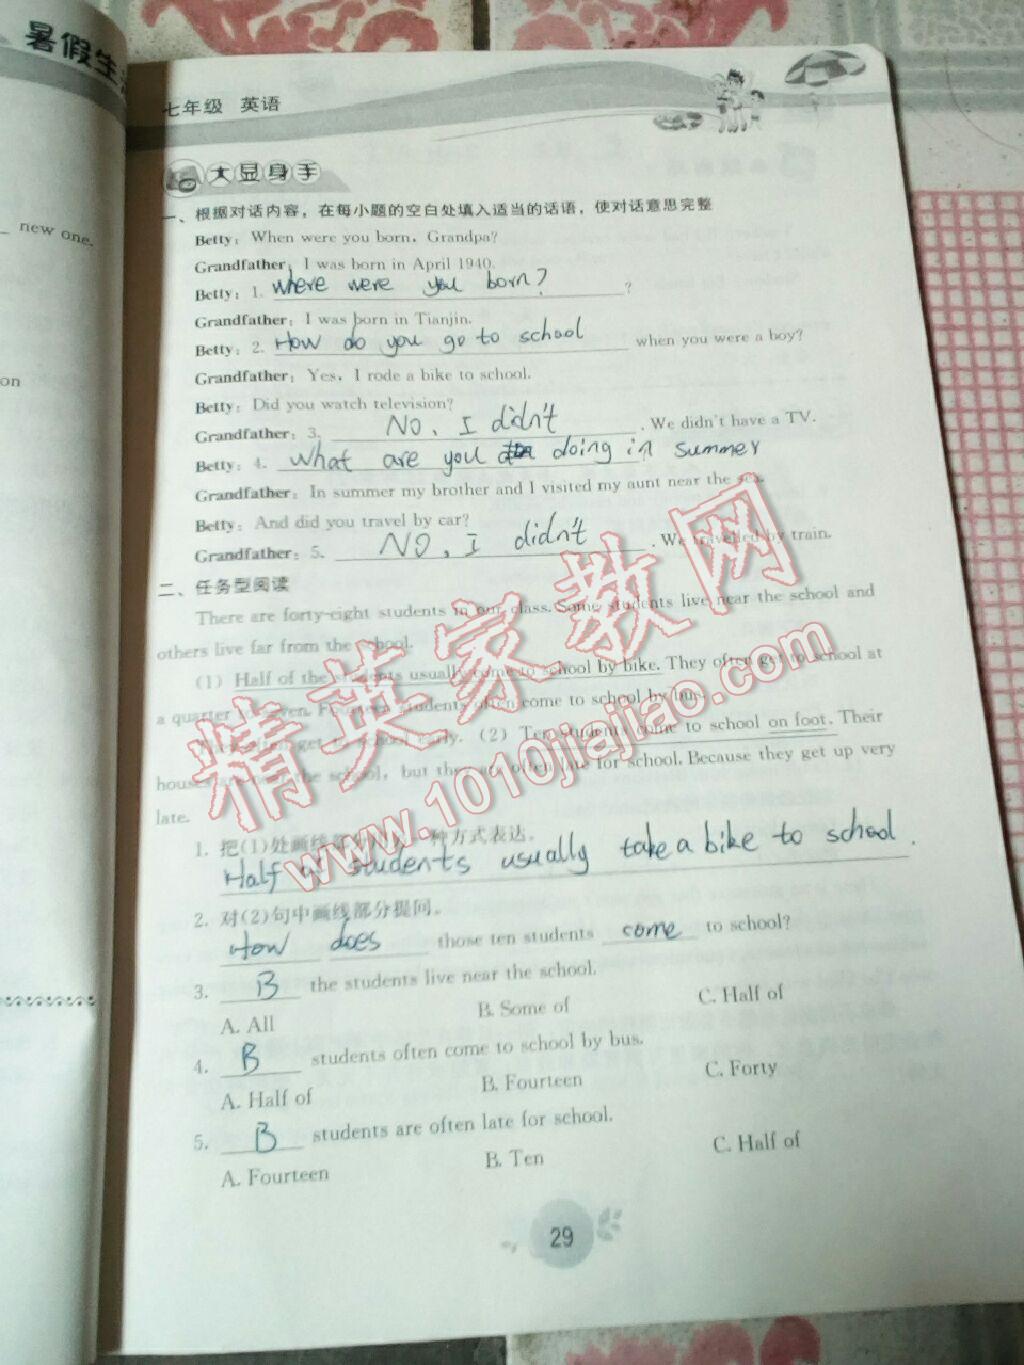 暑假生
new one.
on
七年级 英语
大显身手
一、根据对话内容，在每小题的空白处填入适当的话语，使对话意思完整
Betty: When were you born, Grandpa?
Grandfather: I was born in April 1940.
Betty: 1. where were you born? ?
Grandfather: I was born in Tianjin.
Betty: 2. How do you go to school when you were a boy?
Grandfather: Yes, I rode a bike to school.
Betty: Did you watch television?
Grandfather: 3. No, I didn't . We didn't have a TV.
Betty: 4. What are you doing in summer
Grandfather: In summer my brother and I visited my aunt near the sea.
Betty: And did you travel by car?
Grandfather: 5. No, I didn't . We travelled by train.
二、任务型阅读
There are forty-eight students in our class. Some students live near the school and
others live far from the school.
(1) Half of the students usually come to school by bike. They often get to school at
a quarter to seven. Fourteen students often come to school by bus.
They often get to school early. (2) Ten students come to school on foot. Their
houses are near the school, but they are often late for school. Because they get up very
late.
1. 把(1)处画线部分 种方式表达。
Half of students usually take a bike to school .
2. 对(2)句中画线部分提问。
How does those ten students come to school?
3. B the students live near the school.
A. All B. Some of C. Half of
4. B students often come to school by bus.
A. Half of B. Fourteen C. Forty
5. B students are often late for school.
A. Fourteen B. Ten C. Half of
29
精英家教网
www.1010jiajiao.com